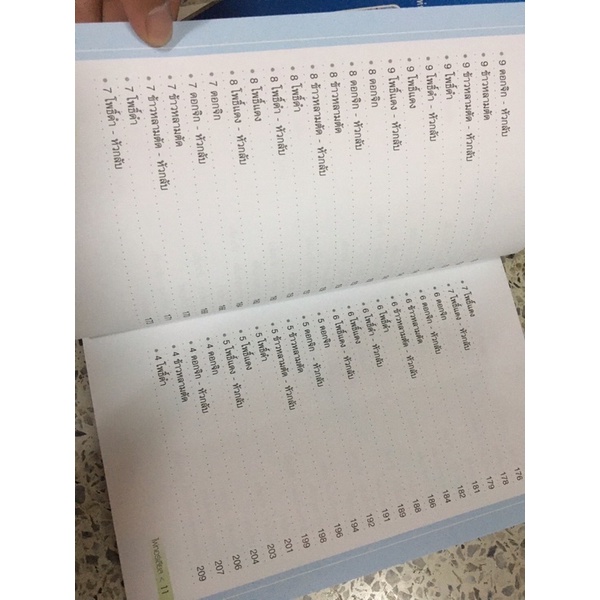 9 ดอกจิก - หัวกลับ
9 ข้าวหลามตัด
9 ข้าวหลามตัด - หัวกลับ
9 โพธิ์ดำ
9 โพธิ์ดำ - หัวกลับ
9 โพธิ์แดง
9 โพธิ์แดง - หัวกลับ
8 ดอกจิก
8 ดอกจิก - หัวกลับ
8 ข้าวหลามตัด
8 ข้าวหลามตัด - หัวกลับ
8 โพธิ์ดำ
8 โพธิ์ดำ - หัวกลับ
8 โพธิ์แดง
8 โพธิ์แดง - หัวกลับ
7 ดอกจิก
7 ดอกจิก - หัวกลับ
7 ข้าวหลามตัด
7 ข้าวหลามตัด - หัวกลับ
7 โพธิ์ดำ
7 โพธิ์ดำ - หัวกลับ
7 โพธิ์แดง
7 โพธิ์แดง - หัวกลับ
6 ดอกจิก
6 ดอกจิก - หัวกลับ
6 ข้าวหลามตัด
6 ข้าวหลามตัด - หัวกลับ
6 โพธิ์ดำ
6 โพธิ์ดำ - หัวกลับ
6 โพธิ์แดง
6 โพธิ์แดง - หัวกลับ
5 ดอกจิก
5 ดอกจิก - หัวกลับ
5 ข้าวหลามตัด
5 ข้าวหลามตัด - หัวกลับ
5 โพธิ์ดำ
5 โพธิ์แดง
5 โพธิ์แดง - หัวกลับ
4 ดอกจิก
4 ดอกจิก - หัวกลับ
4 ข้าวหลามตัด
4 โพธิ์ดำ
176
178
179
181
182
184
186
188
189
191
192
194
196
198
199
201
203
204
206
207
209
11